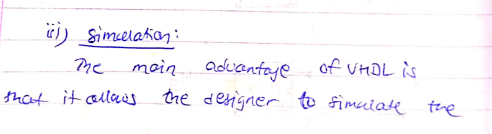 iii) Simulation:
The main advantage of VHDL is
that it allows the designer to simulate the